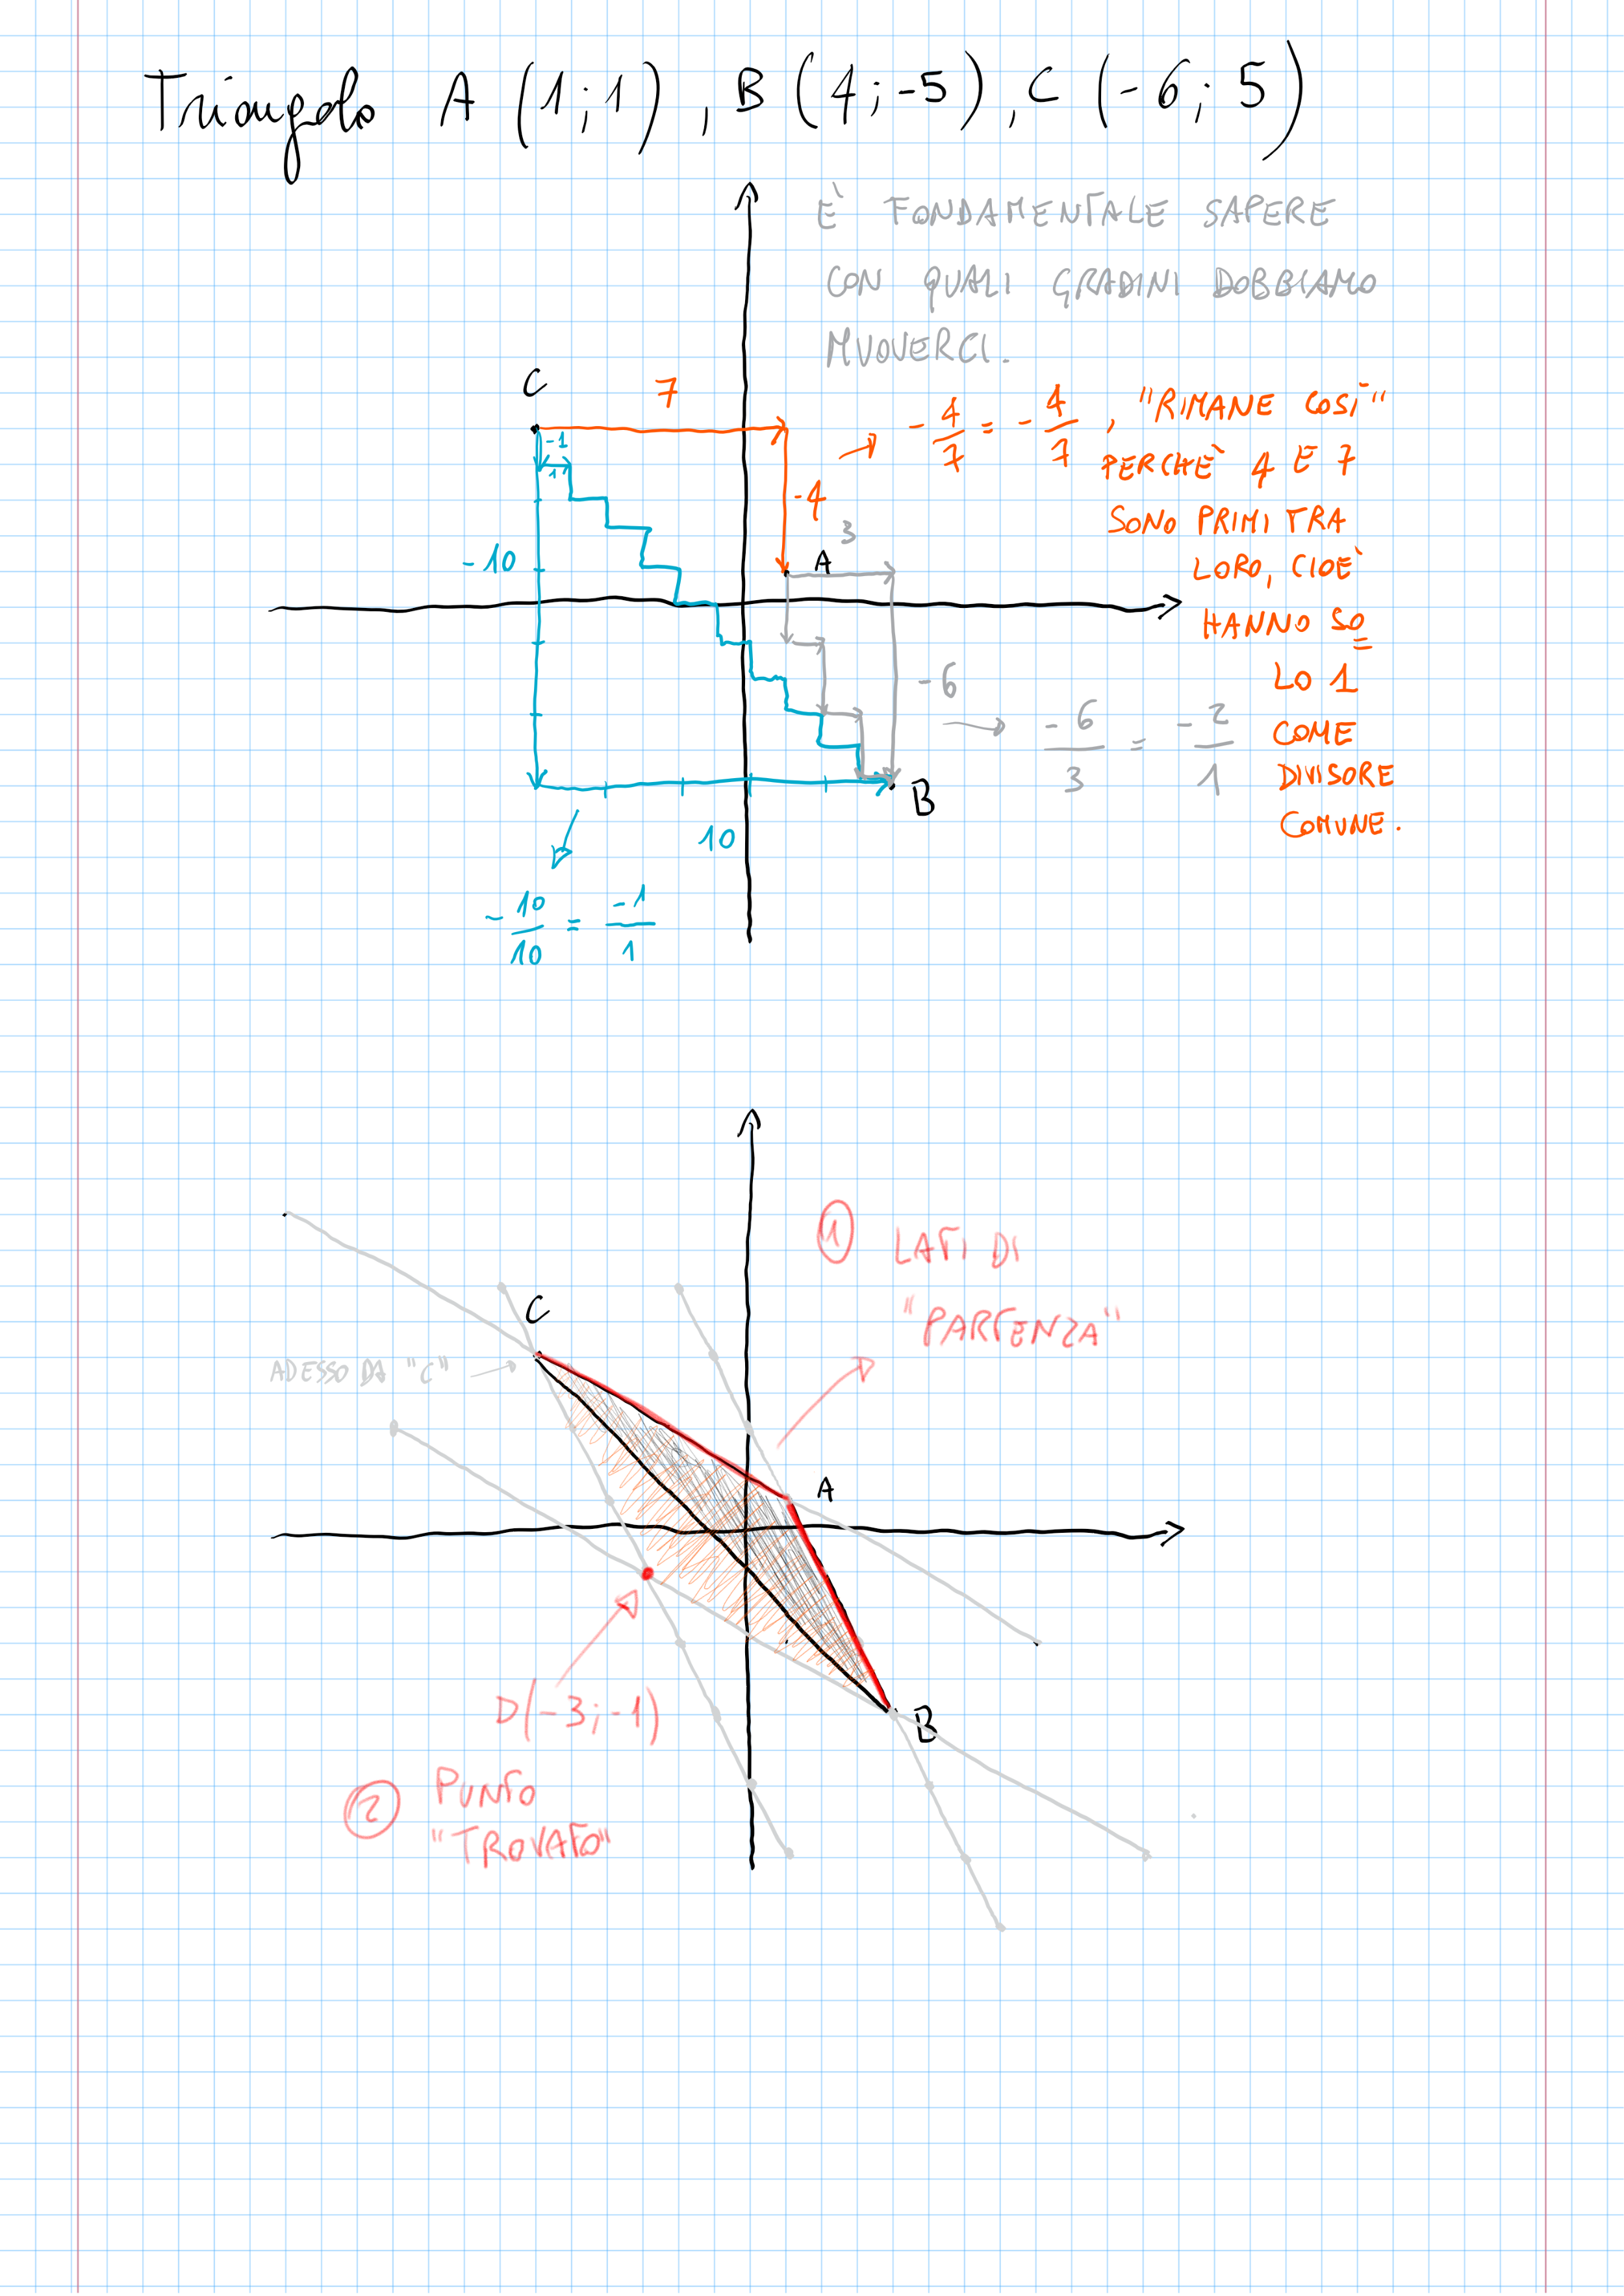 Triangolo A (1;1), B (4;-5), C (-6;5)
È FONDAMENTALE SAPERE
CON QUALI GRADINI DOBBIAMO
MUOVERCI.
C
7
-4/7 = -4/7, "RIMANE COSÌ"
PERCHÈ 4 E 7
SONO PRIMI TRA
LORO, CIOÈ
HANNO SO
LO 1
COME
DIVISORE
COMUNE.
-1
1
-4
3
A
-10
-6
-6/3 = -2/1
B
10
-10/10 = -1/1
1 LATI DI
"PARTENZA"
C
ADESSO DA "C"
A
D(-3;-1)
B
2 PUNTO
"TROVATO"